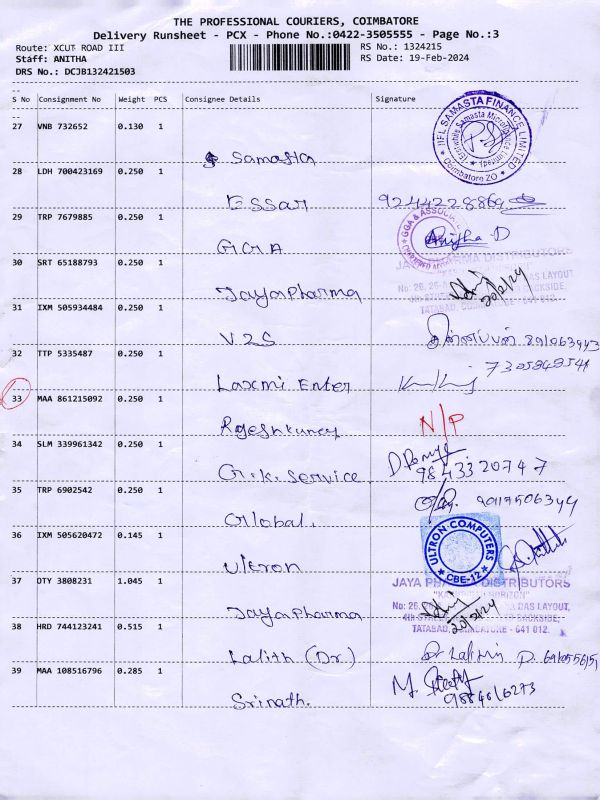 THE PROFESSIONAL COURIERS, COIMBATORE
Delivery Runsheet - PCX - Phone No.:0422-3505555 - Page No.:3
Route: XCUT ROAD III RS No.: 1324215
Staff: ANITHA RS Date: 19-Feb-2024
DRS No.: DCJB132421503
S No Consignment No Weight PCS Consignee Details Signature
27 VNB 732652 0.130 1
Samasta
IIFL SAMASTA FINANCE LIMITED
Coimbatore ZO
28 LDH 700423169 0.250 1
Essar 9244228869
29 TRP 7679885 0.250 1
GGA Anitha D
GGA & ASSOCIATES
30 SRT 65188793 0.250 1
JAYA PHARMA DISTRIBUTORS
Jaya Pharma 20/2/24
TATABAD, COIMBATORE - 641 012.
31 IXM 505934484 0.250 1
V2S
32 TTP 5335487 0.250 1
Laxmi Enter
33 MAA 861215092 0.250 1
Rajeshkumar N/P
34 SLM 339961342 0.250 1
G.K. Service 9843320747
35 TRP 6902542 0.250 1
Global.
36 IXM 505620472 0.145 1
Ultron
ULTRON COMPUTERS
CBE-12
37 OTY 3808231 1.045 1
JAYA PHARMA DISTRIBUTORS
Jaya Pharma 20/2/24
TATABAD, COIMBATORE - 641 012.
38 HRD 744123241 0.515 1
Lalith (Dr.)
39 MAA 108516796 0.285 1
Srinath.